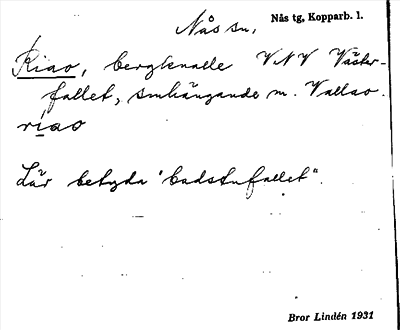 Nås sn, Nås tg, Kopparb. l.
Riao, bergknalle VNV Väster-
fallet, smhängande m. Vallao.
riao
Lär betyda "badstufallet".
Bror Lindén 1931